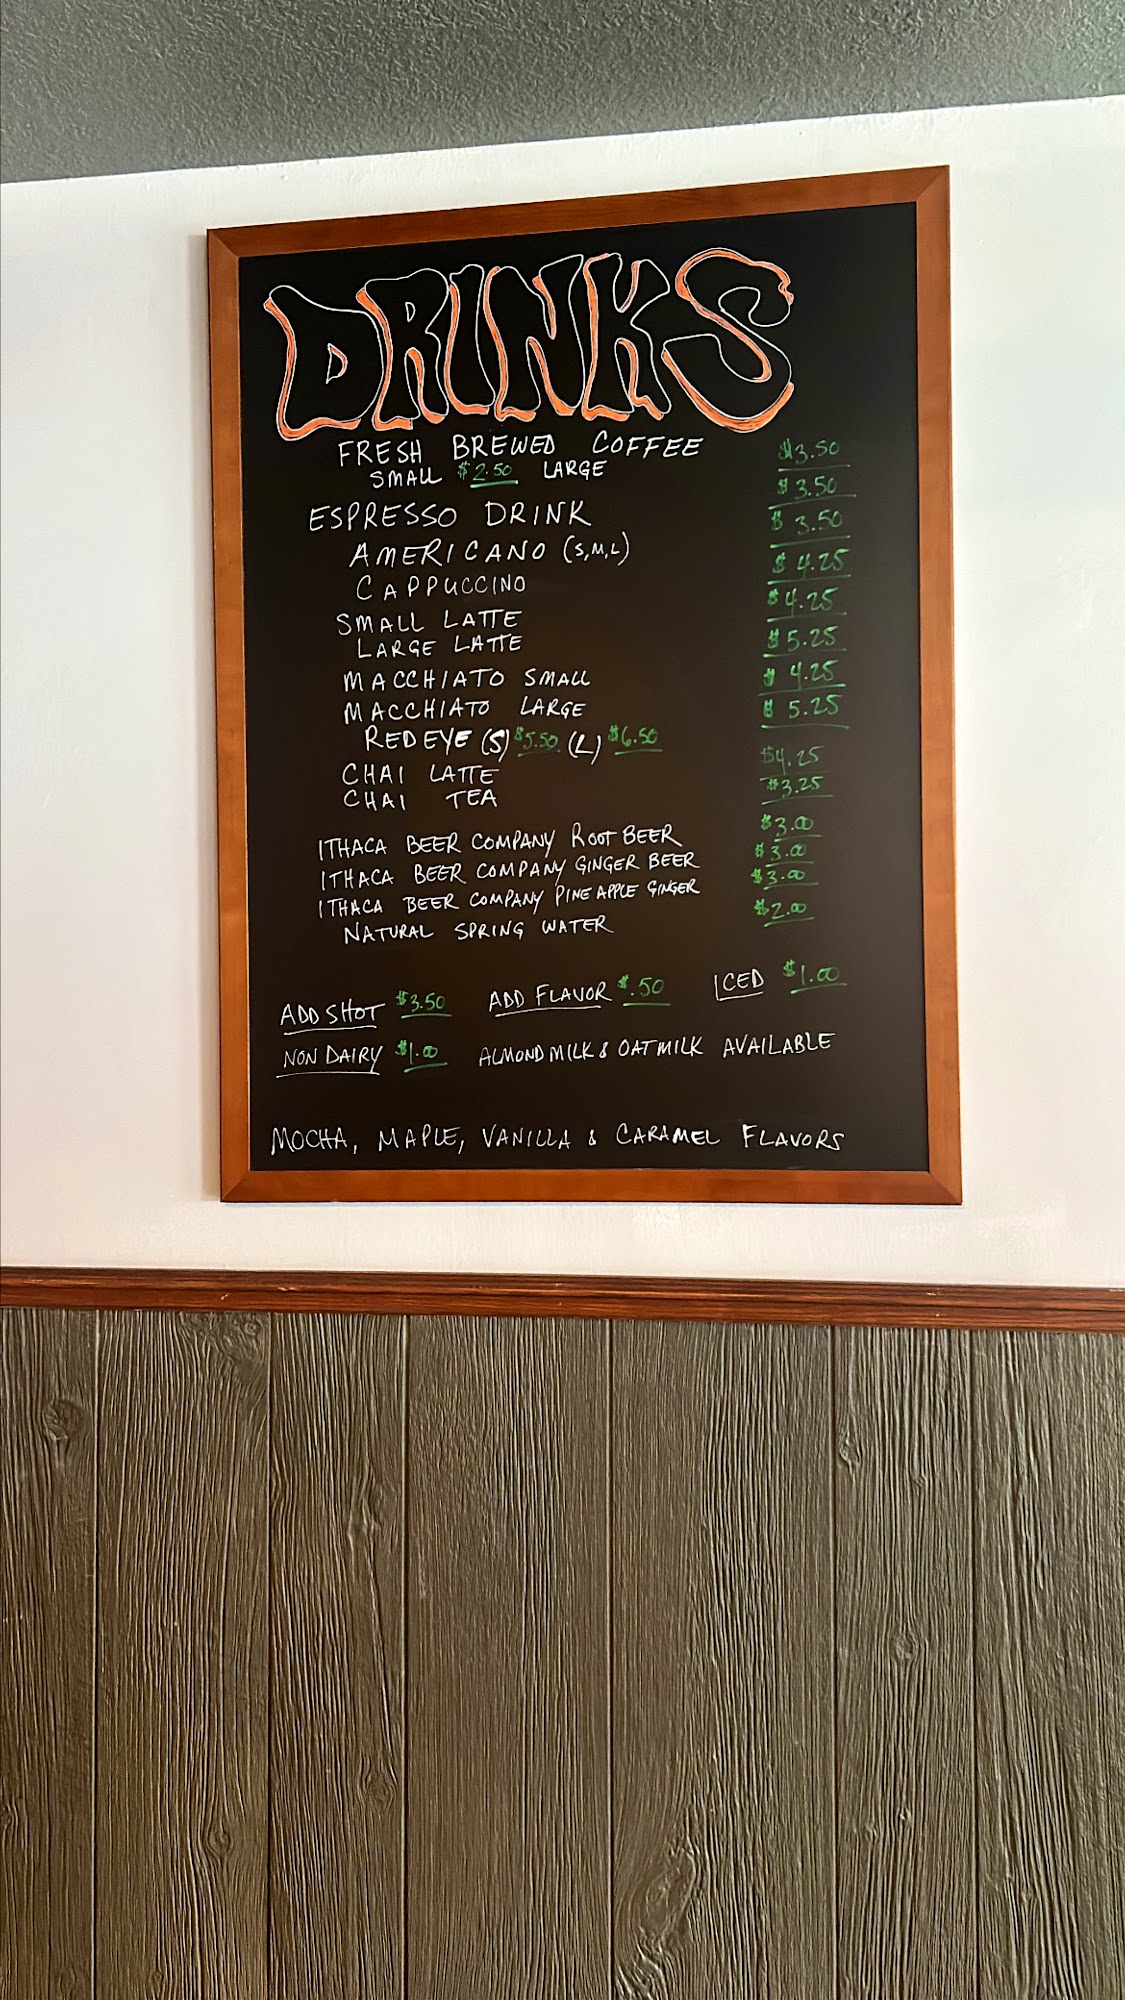 DRINKS
FRESH BREWED COFFEE
SMALL $2.50 LARGE $3.50
ESPRESSO DRINK $3.50
AMERICANO (S,M,L) $3.50
CAPPUCCINO $4.25
SMALL LATTE $4.25
LARGE LATTE $5.25
MACCHIATO SMALL $4.25
MACCHIATO LARGE $5.25
RED EYE (S) $5.50 (L) $6.50
CHAI LATTE $4.25
CHAI TEA $3.25
ITHACA BEER COMPANY ROOT BEER $3.00
ITHACA BEER COMPANY GINGER BEER $3.00
ITHACA BEER COMPANY PINEAPPLE GINGER $3.00
NATURAL SPRING WATER $2.00
ADD SHOT $3.50 ADD FLAVOR $.50 ICED $1.00
NON DAIRY $1.00 ALMOND MILK & OAT MILK AVAILABLE
MOCHA, MAPLE, VANILLA & CARAMEL FLAVORS